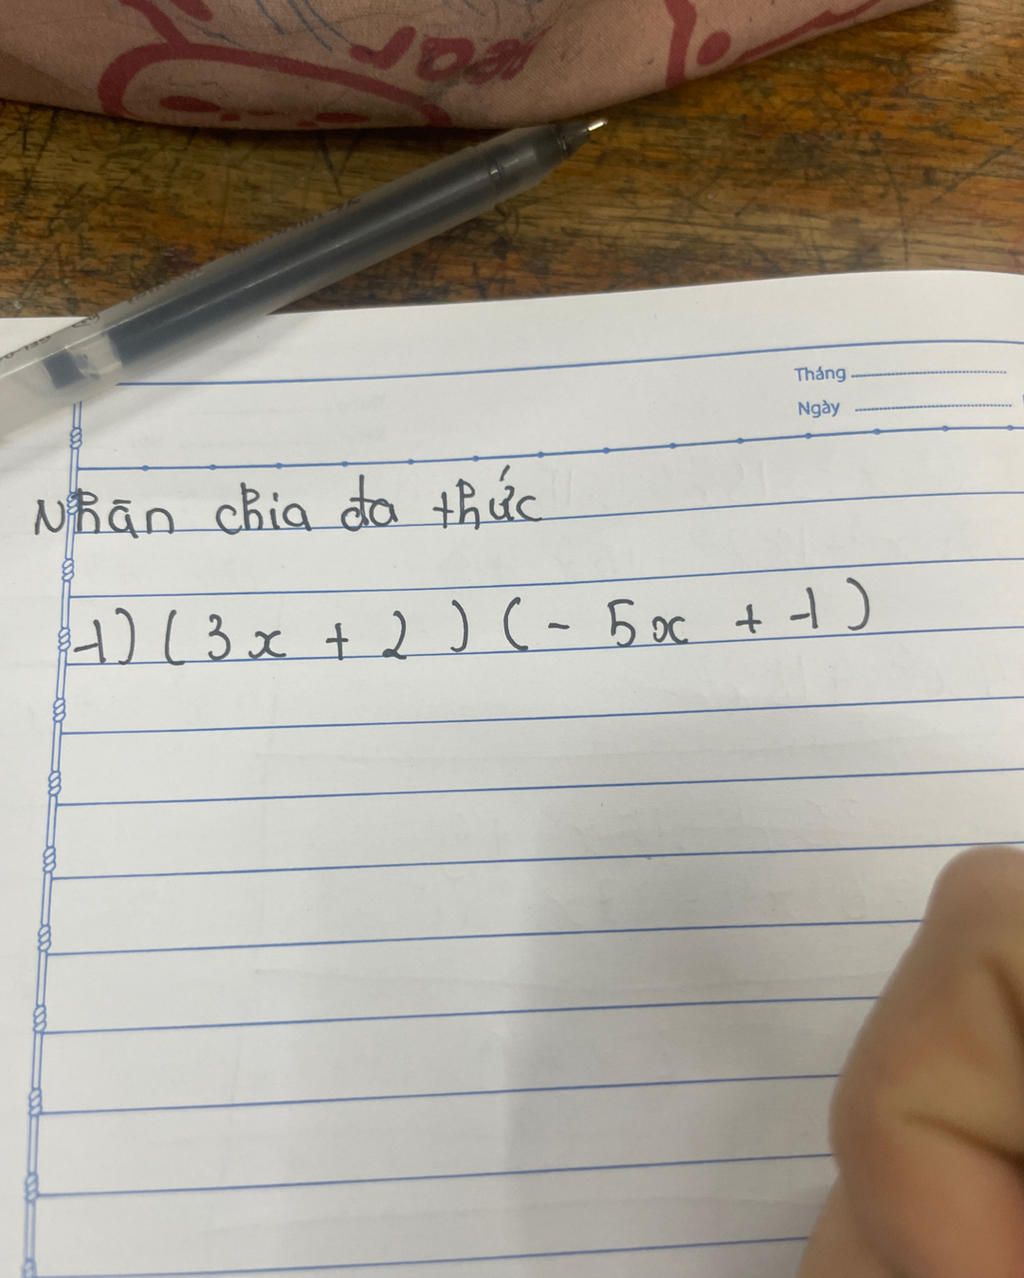 Tháng
Ngày
Nhân chia đa thức
1) (3x + 2) (- 5x + 1)